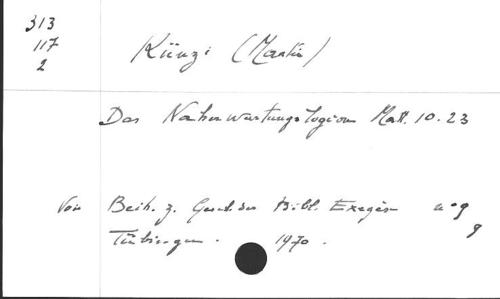 313
117
2
Künzi (Martin)
Das Naherwartungslogion Mat. 10.23
Von Beih. z. Gesch. der Bibl. Exegese n° 9
9
Tübingen. 1970.